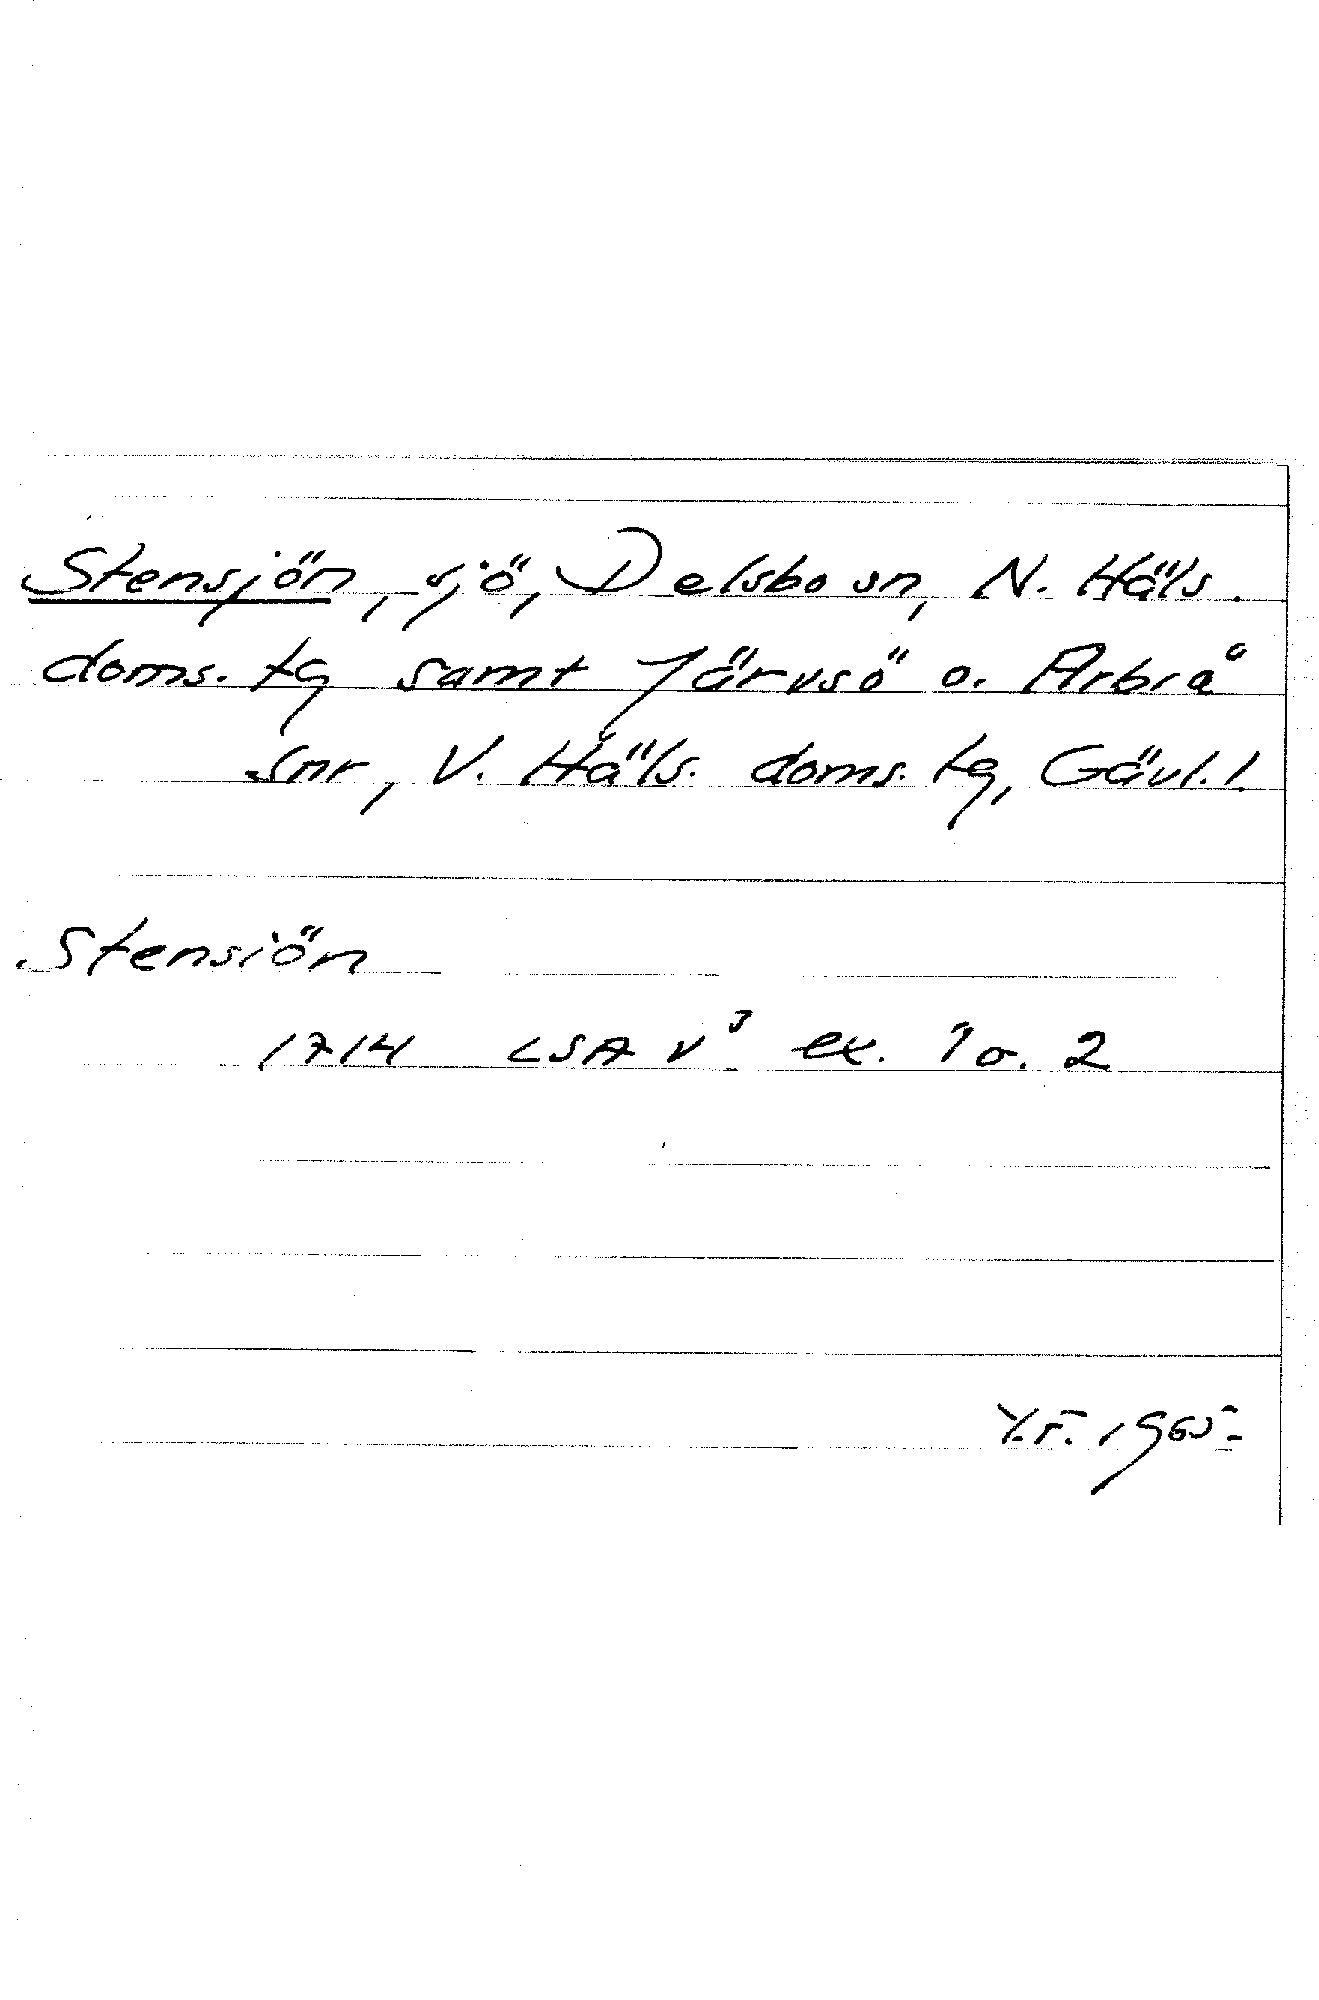 Stensjön, sjö, Delsbo sn, N. Häls.
doms. tg samt Järvsö o. Arbrå
snr, V. Häls. doms. tg, Gävl. l.
Stensiön
1714 LSA V³ ex. 1 o. 2
1965